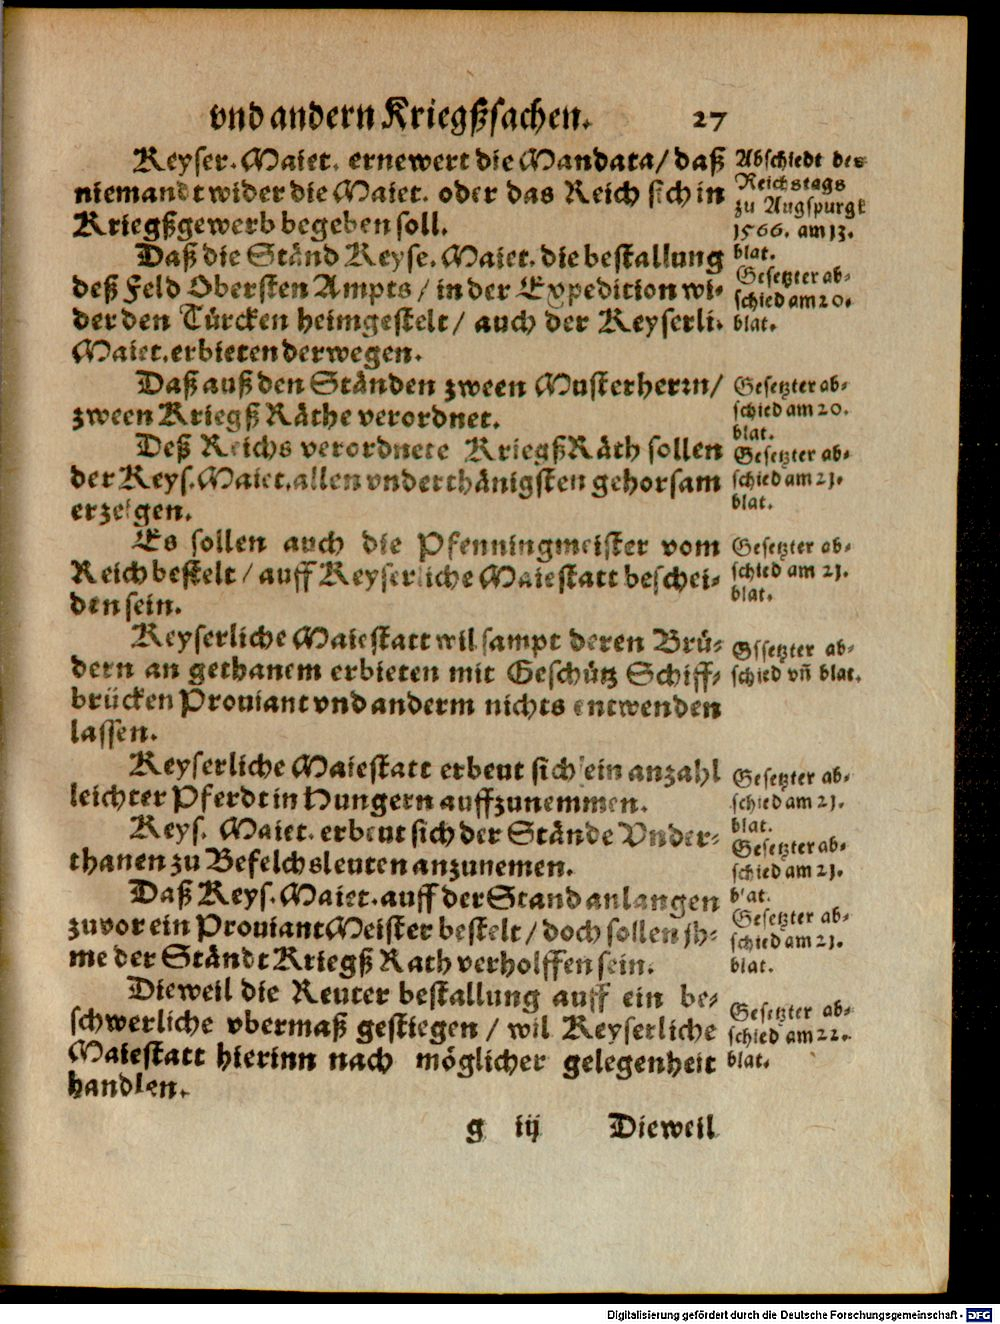 vnd andern Kriegßsachen. 27
Keyser. Maiet. ernewert die Mandata/ daß
niemandt wider die Maiet. oder das Reich sich in
Kriegßgewerb begeben soll.
Abschiedt des
Reichstags
zu Augspurgk
1566. am 13.
blat.
Daß die Ständ Keyse. Maiet. die bestallung
deß Feld Obersten Ampts / in der Expedition wi-
der den Türcken heimgestelt/ auch der Keyserli.
Maiet. erbieten derwegen.
Gesetzter ab-
schied am 20.
blat.
Daß auß den Ständen zween Musterherrn/
zween Kriegß Räthe verordnet.
Gesetzter ab-
schied am 20.
blat.
Deß Reichs verordnete KriegßRäth sollen
der Keys. Maiet. allen vnderthänigsten gehorsam
erzeigen.
Gesetzter ab-
schied am 21.
blat.
Es sollen auch die Pfenningmeister vom
Reich bestelt / auff Keyserliche Maiestatt beschei-
den sein.
Gesetzter ab-
schied am 21.
blat.
Keyserliche Maiestatt wil sampt deren Brü-
dern an gethanem erbieten mit Geschütz Schiff-
brücken Prouiant vnd anderm nichts entwenden
lassen.
Gssetzter ab-
schied vñ blat.
Keyserliche Maiestatt erbeut sich ein anzahl
leichter Pferdt in Hungern auffzunemmen.
Gesetzter ab-
schied am 21.
blat.
Keys. Maiet. erbeut sich der Stände Vnder-
thanen zu Befelchsleuten anzunemen.
Gesetzter ab-
schied am 21.
blat.
Daß Keys. Maiet. auff der Stand anlangen
zuvor ein ProuiantMeister bestelt / doch sollen jh-
me der Ständt Kriegß Rath verholffen sein.
Gesetzter ab-
schied am 21.
blat.
Dieweil die Reuter bestallung auff ein be-
schwerliche vbermaß gestiegen / wil Keyserliche
Maiestatt hierinn nach möglicher gelegenheit
handlen.
Gesetzter ab-
schied am 22.
blat.
g iij Dieweil
Digitalisierung gefördert durch die Deutsche Forschungsgemeinschaft - DFG